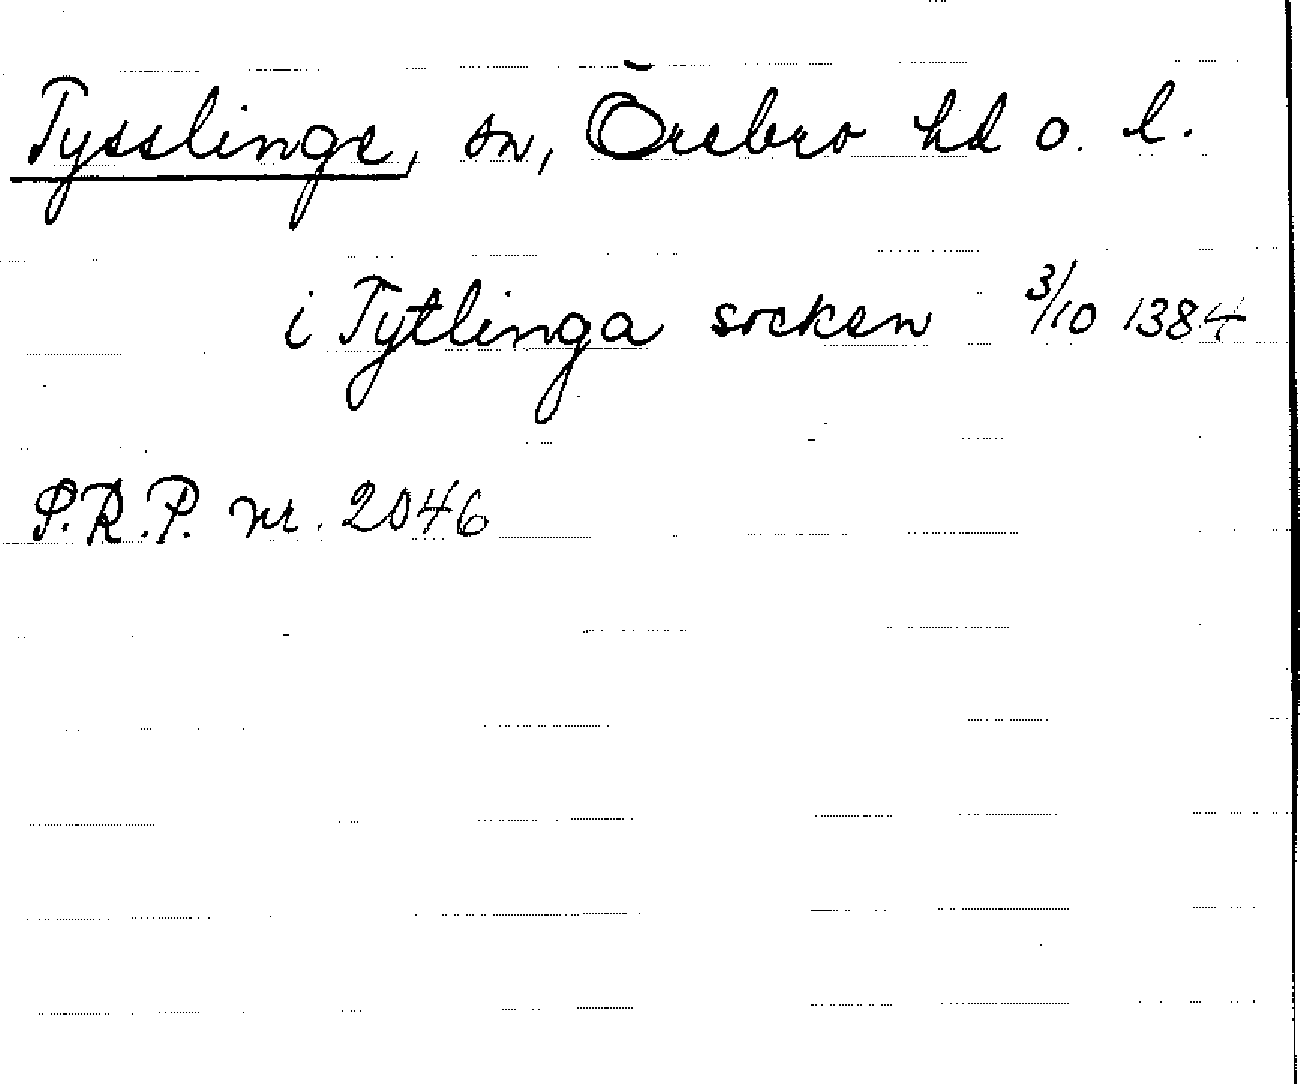 Tysslinge, sn, Örebro hd o. l.
i Tytlinga socken 3/10 1384
S.R.P. nr. 2046